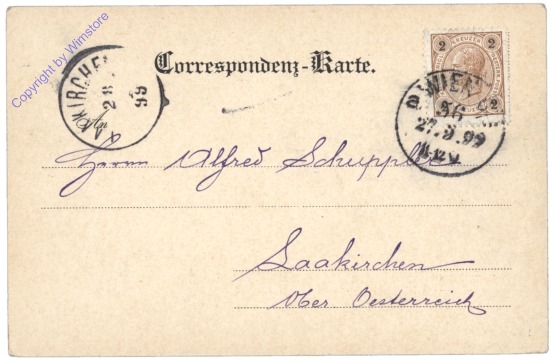 Copyright by Wimstore
Correspondenz-Karte.
2 KREUZER 2
2
AKIRCHEN
28
99
WIEN
56
27.5.99
An
Herrn Alfred Schuppler
Laakirchen
Ober Oesterreich